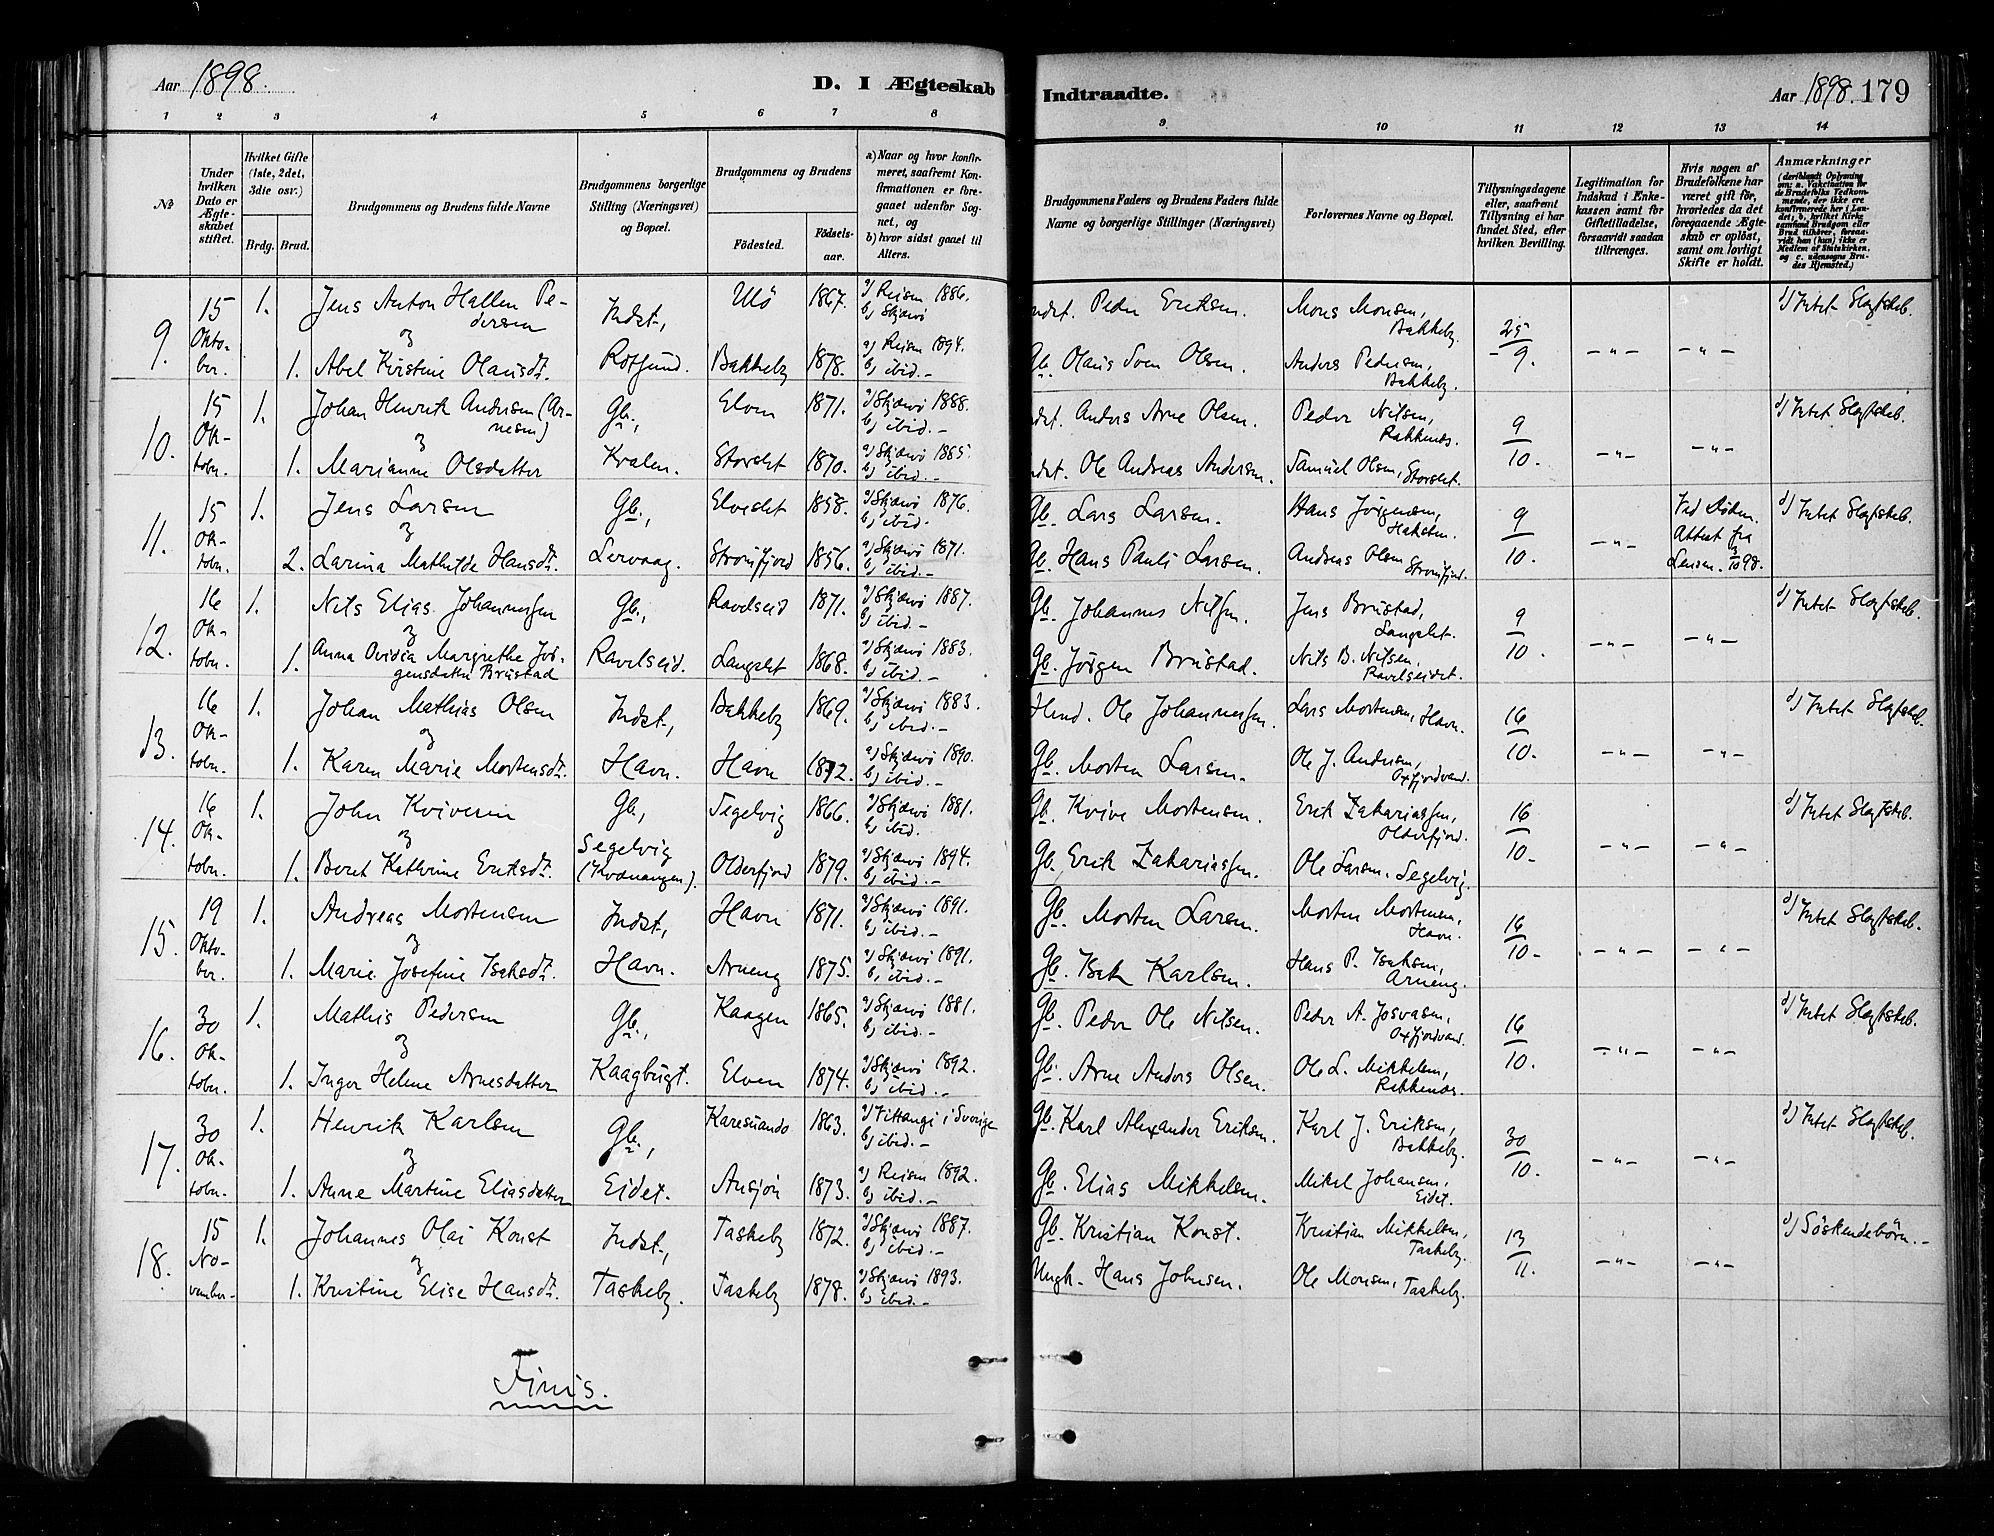 Aar 1898.
D. I Ægteskab
Indtraadte.
Aar 1898. 179
1 2 3 4 5 6 7 8
9 10 11 12 13 14
№
Under hvilken Dato er Ægteskabet stiftet.
Hvilket Gifte (1ste, 2det, 3die osv.)
Brdg. Brud.
Brudgommens og Brudens fulde Navne
Brudgommens borgerlige Stilling (Næringsvei) og Bopæl.
Brudgommens og Brudens
Fødested. Fødselsaar.
a) Naar og hvor konfirmeret, saafremt Konfirmationen er foregaaet udenfor Sognet, og
b) hvor sidst gaaet til Alters.
Brudgommens Faders og Brudens Faders fulde Navne og borgerlige Stillinger (Næringsvei)
Forlovernes Navne og Bopæl.
Tillysningsdagene eller, saafremt Tillysning ei har fundet Sted, efter hvilken Bevilling.
Legitimation for Indskud i Ænkekassen samt for Giftetilladelse, forsaavidt saadan tiltrænges.
Hvis nogen af Brudefolkene har været gift før, hvorledes da det foregaaende Ægteskab er opløst, samt om lovligt Skifte er holdt.
Anmærkninger
(deriblandt Oplysning om: a. Vakcination for de Brudefolks Vedkommende, der ikke ere konfirmerede her i Landet; b. hvilket Kirkesamfund Brudgom eller Brud tilhører, forsaavidt han (hun) ikke er Medlem af Statskirken, og c. udensogns Brudes Hjemsted.)
9. 15 Oktober. 1. Jens Anton Hallen Pedersen Indst., Ulö 1867. a) Reisen 1886. b) Skjærvö
Peder Eriksen. Mons Monsen, Bakkeby. 25/9. d) Intet Slegtskab.
& 1. Abel Kirstine Olausdt. Rotsund. Bakkeby 1878. a) Reisen 1894. b) ibid.-
Gb. Olaus Sven Olsen. Anders Pedersen, Bakkeby. -"- -"-
10. 15 Oktobr. 1. Johan Henrik Andersen (Arnesen) Gb., Elven 1871. a) Skjærvö 1888. b) ibid.-
Anders Arne Olsen. Peder Nilsen, Rakkenæs. 9/10. d) Intet Slegtskab.
& 1. Marianne Olsdatter Kvalen. Storslet 1870. a) Skjærvö 1885. b) ibid.-
Ole Andreas Andersen. Samuel Olsen, Storslet. -"- -"-
11. 15 Oktobr. 1. Jens Larsen Gb., Elveslet 1858. a) Skjærvö 1876. b) ibid.
Gb. Lars Larsen. Hans Jörgensen, Haksten. 9/10. Ved Döden. Attest fra Lensm. 3/10 98. d) Intet Slegtskab.
& 2. Larina Mathilde Hansdt. Lervaag. Strömfjord 1856. a) Skjærvö 1871. b) ibid.-
Gb. Hans Pauli Larsen. Andreas Olsen Strömfjord. -"-
12. 16 Oktobr. 1. Nils Elias Johannessen Gb., Ravelseid 1871. a) Skjærvö 1887. b) ibid.-
Gb. Johannes Nilsen. Jens Brustad, Langslet. 9/10. d) Intet Slegtskab.
& 1. Anna Ovidia Margrethe Jörgensdatter Brustad Ravelseid. Langslet 1868. a) Skjærvö 1883. b) ibid.-
Gb. Jörgen Brustad. Nils B. Nilsen, Ravelseidet. -"- -"-
13. 16 Oktobr. 1. Johan Mathias Olsen Indst., Bakkeby 1869. a) Skjærvö 1883. b) ibid.-
Ole Johannessen. Lars Mortensen, Havn. 16/10. d) Intet Slegtskab.
& 1. Karen Marie Mortensdt. Havn. Havn 1872. a) Skjærvö 1890. b) ibid.-
Gb. Morten Larsen. Ole J. Andersen, Oxfjordvand. -"- -"-
14. 16 Oktobr. 1. John Kvivesen Gb., Segelvig 1866. a) Skjærvö 1881. b) ibid.
Gb. Kvive Mortensen. Erik Zakariassen, Olderfjord. 16/10. d) Intet Slegtskab.
& 1. Beret Kathrine Eriksdt. Segelvig (Kvænangen). Olderfjord 1879. a) Skjærvö 1894. b) ibid.-
Gb. Erik Zakariassen. Ole Larsen, Segelvig. -"- -"-
15. 19 Oktober. 1. Andreas Mortensen Indst., Havn 1871. a) Skjærvö 1891. b) ibid.-
Gb. Morten Larsen. Morten Mortensen, Havn. 16/10. d) Intet Slegtskab.
& 1. Marie Josefine Isaksdt. Havn. Arneng 1875. a) Skjærvö 1891. b) ibid.-
Gb. Isak Karlsen. Hans P. Isaksen, Arneng. -"- -"-
16. 30 Oktobr. 1. Mathis Pedersen Gb., Kaagen 1865. a) Skjærvö 1881. b) ibid.-
Gb. Peder Ole Nilsen. Peder A. Josvasen, Oxfjordvand. 16/10. d) Intet Slegtskab.
& 1. Inger Helene Arnesdatter Kaagbugt. Elven 1874. a) Skjærvö 1892. b) ibid.-
Gb. Arne Anders Olsen. Ole L. Mikkelsen, Rakkenæs. -"- -"-
17. 30 Oktobr. 1. Henrik Karlsen Gb., Karesuando 1863. a) Vittangi i Sverige b) ibid.-
Gb. Karl Alexander Eriksen. Karl J. Eriksen, Bakkeby. 30/10. d) Intet Slegtskab.
& 1. Anne Martine Eliasdatter Eidet. Ansjön 1873. a) Reisen 1892. b) ibid.-
Gb. Elias Mikkelsen. Mikel Johansen, Eidet. -"- -"-
18. 15 November. 1. Johannes Olai Konst Indst., Taskeby 1872. a) Skjærvö 1887. b) ibid.-
Gb. Kristian Konst. Kristian Mikkelsen, Taskeby. 13/11. d) Söskendebörn.-
& 1. Kristine Elise Hansdt. Taskeby. Taskeby 1878. a) Skjærvö 1893. b) ibid.-
Ungk. Hans Johnsen. Ole Monsen, Taskeby. -"- -"-
Finis.